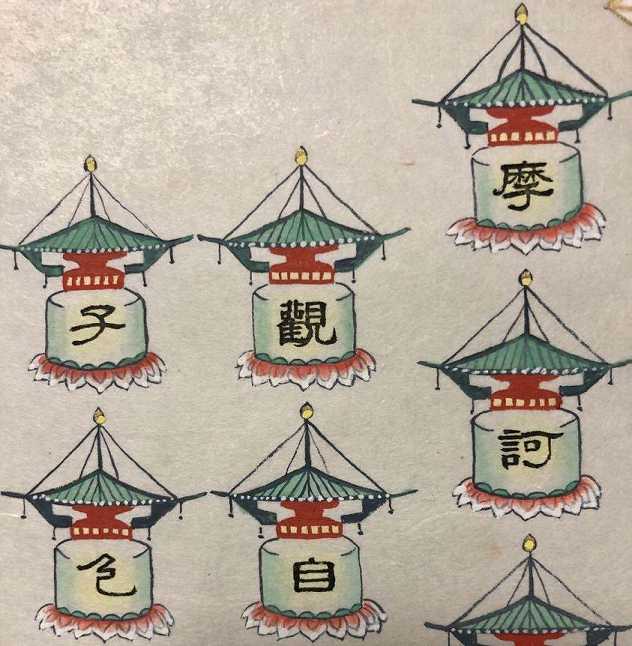 摩訶
觀自
子色